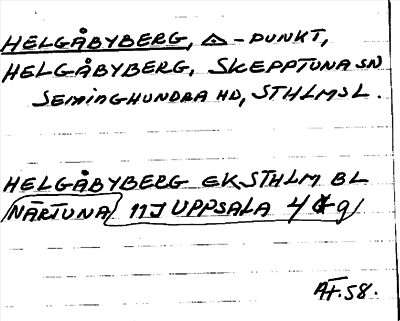 HELGÅBYBERG, △ - PUNKT,
HELGÅBYBERG, SKEPPTUNA SN
SEMINGHUNDRA HD, STHLMS L.
HELGÅBYBERG EK STHLM BL
NÄRTUNA 11J UPPSALA 4 g
ÅT.58.